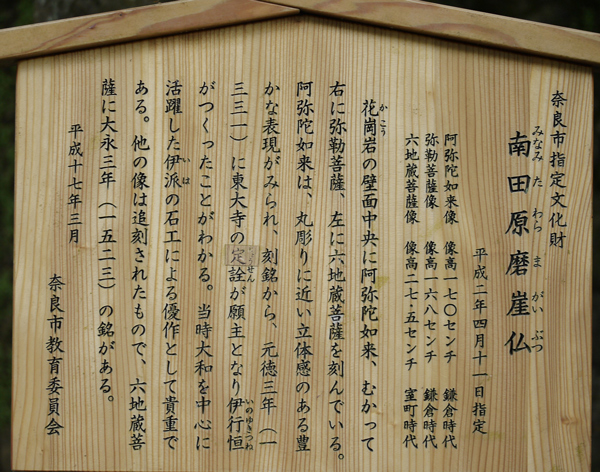 奈良市指定文化財
南田原磨崖仏
みなみたわらまがいぶつ
平成二年四月十一日指定
阿弥陀如来像 像高一七〇センチ 鎌倉時代
弥勒菩薩像 像高一六八センチ 鎌倉時代
六地蔵菩薩像 像高二七・五センチ 室町時代
花崗岩の壁面中央に阿弥陀如来、むかって
かこう
右に弥勒菩薩、左に六地蔵菩薩を刻んでいる。
阿弥陀如来は、丸彫りに近い立体感のある豊
かな表現がみられ、刻銘から、元徳三年（一
三三一）に東大寺の定詮が願主となり伊行恒
いのゆきつね
がつくったことがわかる。当時大和を中心に
活躍した伊派の石工による優作として貴重で
いは
ある。他の像は追刻されたもので、六地蔵菩
薩に大永三年（一五二三）の銘がある。
平成十七年三月
奈良市教育委員会